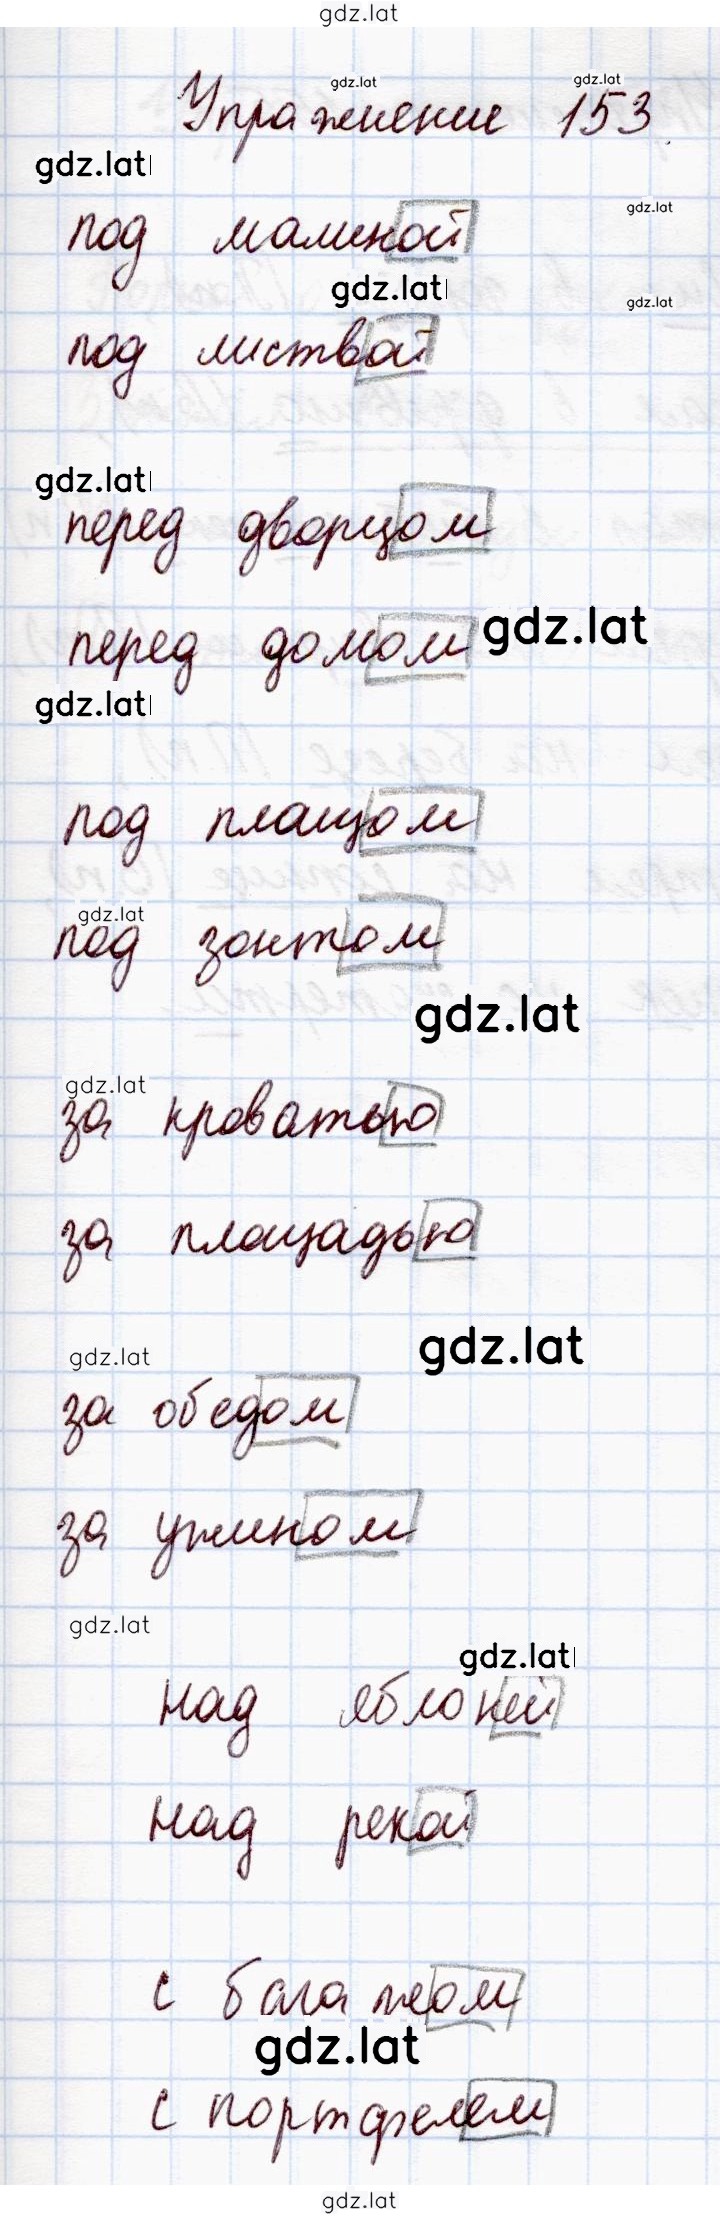 gdz.lat
gdz.lat gdz.lat
Упражнение 153
gdz.lat
gdz.lat
под малиной
gdz.lat gdz.lat
под листвой
gdz.lat
перед дворцом
gdz.lat
перед домом
gdz.lat
под плащом
gdz.lat
под зонтом
gdz.lat
gdz.lat
за кроватью
за площадью
gdz.lat
gdz.lat
за обедом
за ужином
gdz.lat
gdz.lat
над яблоней
над рекой
с багажом
gdz.lat
с портфелем
gdz.lat